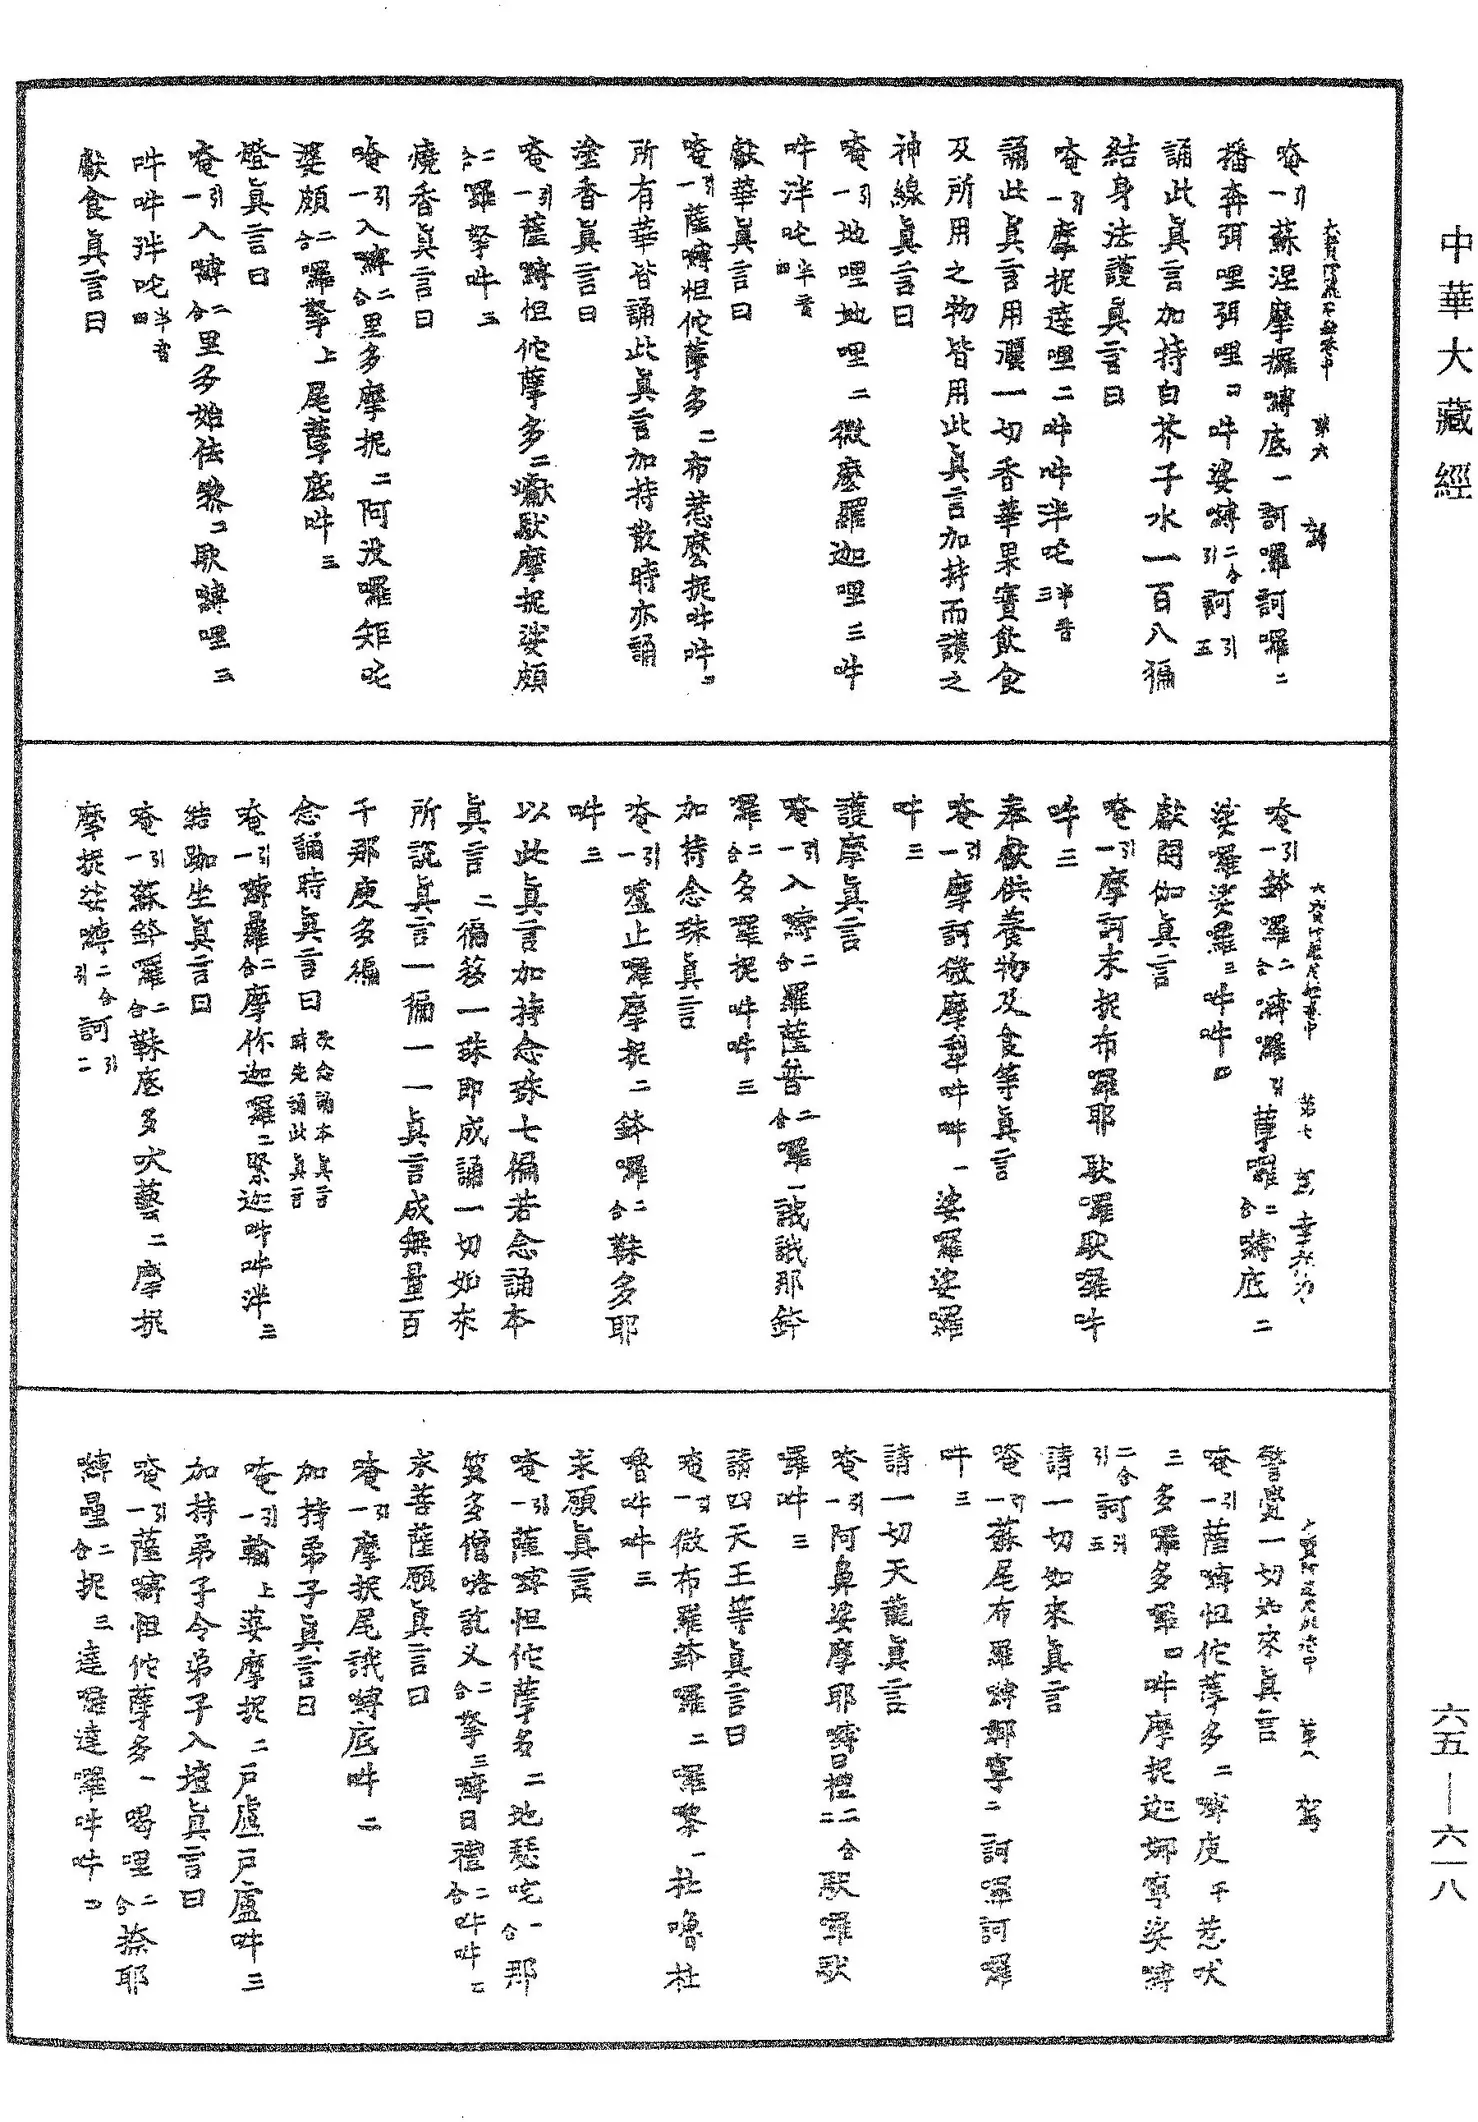 中華大藏經
唵引一蘇涅摩攞嚩底一訶囉訶囉二
播奔弭哩弭哩四吽娑嚩二合引訶引五
誦此真言加持白芥子水一百八徧
結身法護真言曰
唵引一摩捉達哩二吽吽泮吒半音三
誦此真言用灑一切香華果寶飲食
及所用之物皆用此真言加持而護之
神線真言曰
唵引一地哩地哩二微麼羅迦哩三吽
吽泮吒半音四
獻華真言曰
唵引一薩嚩怛佗孽多二布惹麼捉吽吽三
所有華皆誦此真言加持散時亦誦
塗香真言曰
唵引一薩嚩怛佗孽多二巘馱摩捉娑頗
二合羅拏吽三
燒香真言曰
唵引一入嚩二合里多摩捉二阿没囉矩吒
娑頗二合囉拏上尾孽底吽三
燈真言曰
唵引一入嚩二合里多始佉黎二馱嚩哩三
吽吽泮吒半音四
獻食真言曰
唵引一鉢羅二合嚩羅引孽囉二合嚩底二
娑羅娑羅三吽吽四
獻閼伽真言
唵引一摩訶末捉布羅耶馱囉馱囉吽
吽三
奉獻供養物及食等真言
唵引一摩訶微摩犁吽吽一娑羅娑羅
吽三
護摩真言
唵引一入嚩二合羅薩普二合羅一誐誐那鉢
羅二合多羅捉吽吽三
加持念珠真言
唵引一盧止囉摩捉二鉢囉二合靺多耶
吽三
以此真言加持念珠七徧若念誦本
真言二徧䇿一珠即成誦一切如來
所説真言一徧一一真言成無量百
千那庾多編
念誦時真言曰欲念誦本真言時先誦此真言
唵引一嚩羅二合摩你迦羅二緊迦吽吽泮三
結跏坐真言曰
唵引一蘇鉢羅二合靺底多吠藝二摩捉
摩捉娑嚩二合引訶引二
警覺一切如來真言
唵引一薩嚩怛佗孽多二嚩皮于惹吠
三多羅多羅四吽摩捉迦娜寧娑嚩
二合引訶引五
請一切如來真言
唵引一蘇尾布羅嚩娜寧二訶囉訶囉
吽三
請一切天龍真言
唵引一阿鼻娑摩耶嚩日𭉨二合二馱囉馱
囉吽三
請四天王等真言曰
唵引一微布羅鉢羅二囉黎一社嚕社
嚕吽吽三
求願真言
唵引一薩嚩怛佗孽多二地瑟吒一合那
質多僧咯訖乂二合拏三嚩日禮二合吽吽三
求菩薩願真言曰
唵引一摩捉尾誐嚩底吽二
加持弟子真言曰
唵引一輸上婆摩捉二戸盧戸盧吽三
加持弟子令弟子入壇真言曰
唵引一薩嚩怛佗孽多一喝哩二合捺耶
嚩曩二合捉三達囉達囉吽吽四
六五—六一八